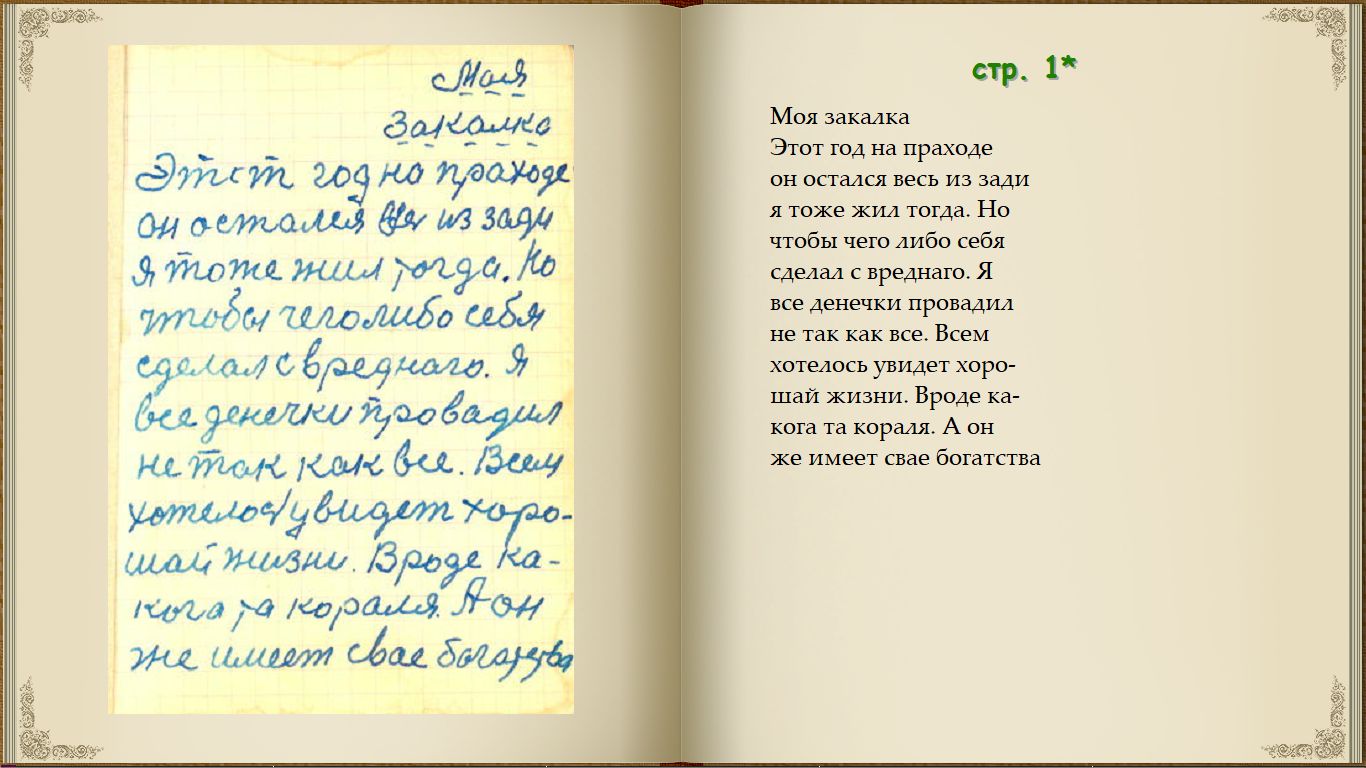 Моя
Закалка
Этот год на праходе
он остался весь из зади
я тоже жил тогда. Но
чтобы чего либо себя
сделал с вреднаго. Я
все денечки провадил
не так как все. Всем
хотелось увидет хоро-
шай жизни. Вроде ка-
кога та кораля. А он
же имеет свае богатства
стр. 1*
Моя закалка
Этот год на праходе
он остался весь из зади
я тоже жил тогда. Но
чтобы чего либо себя
сделал с вреднаго. Я
все денечки провадил
не так как все. Всем
хотелось увидет хоро-
шай жизни. Вроде ка-
кога та кораля. А он
же имеет свае богатства